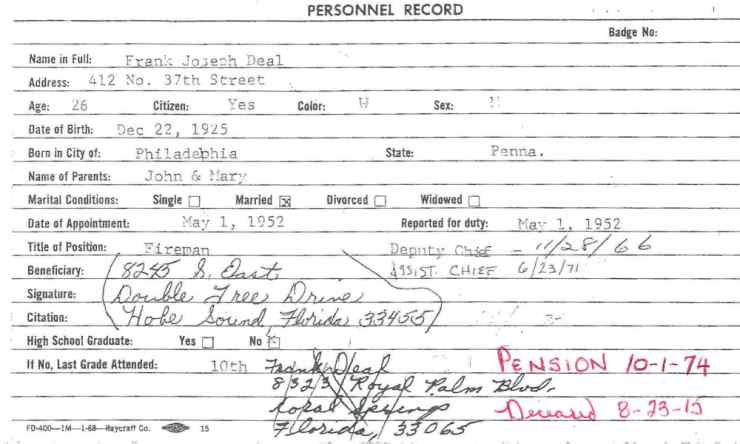 PERSONNEL RECORD
Badge No:
Name in Full: Frank Joseph Deal
Address: 412 No. 37th Street
Age: 26 Citizen: Yes Color: W Sex: M
Date of Birth: Dec 22, 1925
Born in City of: Philadephia State: Penna.
Name of Parents: John & Mary
Marital Conditions: Single Married Divorced Widowed
Date of Appointment: May 1, 1952 Reported for duty: May 1, 1952
Title of Position: Fireman Deputy Chief - 11/28/66
Beneficiary: 8245 S. East ASSIST. CHIEF 6/23/71
Signature: Double Tree Drive
Citation: Hobe Sound, Florida 33455
High School Graduate: Yes No
If No, Last Grade Attended: 10th Frank Deal PENSION 10-1-74
8323 Royal Palm Blvd.
Coral Springs Deceased 8-23-15
FD-400-1M-1-68-Haycraft Co. 15 Florida, 33065